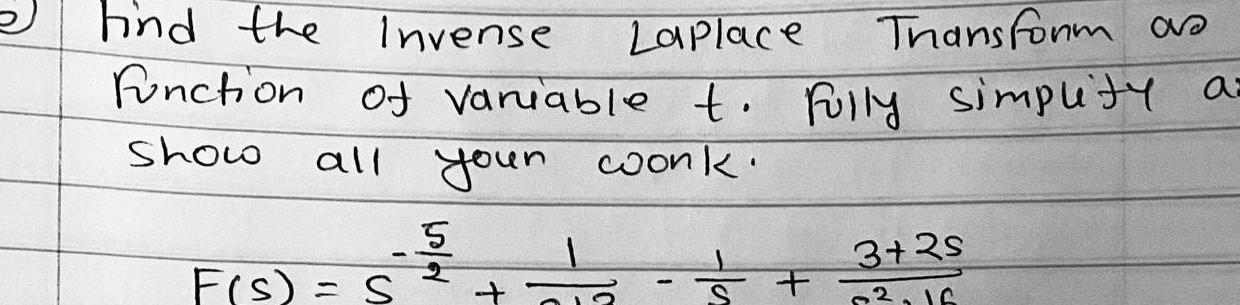 Find the Invense Laplace Transform as
function of variable t. Fully simplify
show all youn wonk.
F(s) = s^{-5/2} + 1/ - 1/s + 3+2s/